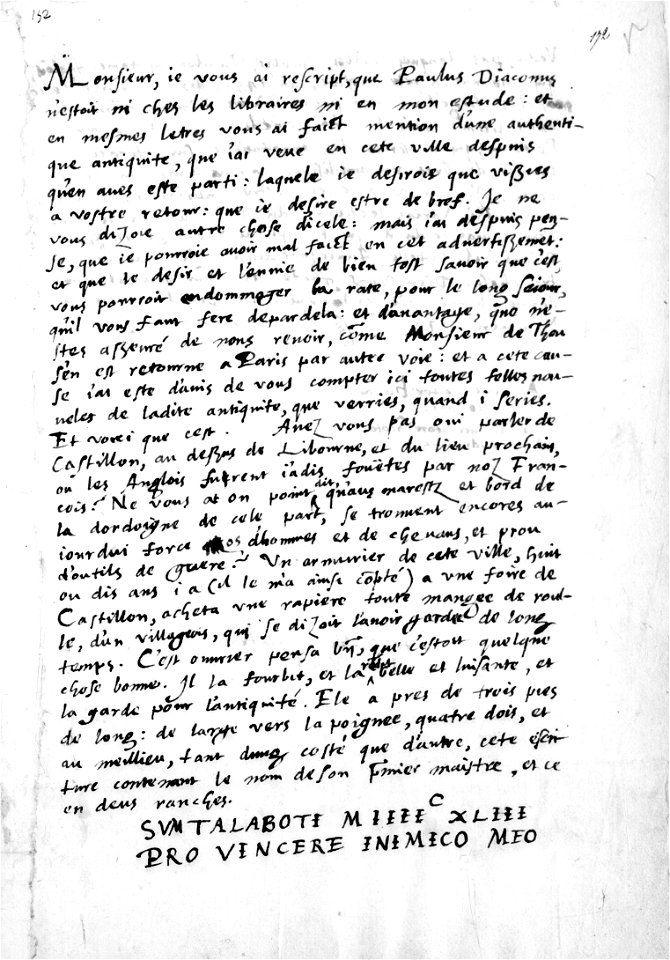 152
192
Monsieur, ie vous ai rescript, que Paulus Diaconus
n'estoit ni ches les libraires ni en mon estude: et
en mesmes letres vous ai faict mention d'une authenti-
que antiquite, que i'ai veue en cete ville despuis
qu'en aues esté parti: laquele ie desirois que vissies
a vostre retour: que ie desire estre de bref. Je ne
vous dizoie autre chose d'icele: mais i'ai despuis pen-
se, que ie pourroie auoir mal faict en cet aduertissemēt:
et que le desir et l'enuie de bien tost sauoir que c'est,
vous pourroit endommager la rate, pour le long seiour,
qu'il vous faut fere depardela: et d'auantage, que n'e-
stes asseuré de nous reuoir, cōme Monsieur de Thou
s'en est retourne a Paris par autre voie: et a cete cau-
se i'ai este d'auis de vous compter ici toutes telles nou-
ueles de ladite antiquite, que verries, quand i series.
Et voici que c'est. Auez vous pas oui parler de
Castillon, au dessus de Libourne, et du lieu prochain,
ou les Anglois furent iadis fouëtes par noz Fran-
cois? Ne vous at on point dit, qu'aus marestz et bord de
la dordoigne de cele part, se trouuent encores au-
iourdui force os d'hommes et de cheuaus, et prou
d'outils de guere? Un armurier de cete ville, huit
ou dis ans i a (il le m'a ainse cōpté) a vne foire de
Castillon, acheta vne rapiere toute mangee de roul-
le, d'un villageois, qui se dizoit l'auoir gardee de long
temps. C'est ouurier pensa bien, que c'estoit quelque
chose bonne. Il la fourbit, et la rēdit belle et luisante, et
la garde pour l'antiquité. Ele a pres de trois pies
de long: de large vers la poignee, quatre dois, et
au meillieu, tant d'ung costé que d'autre, cete escri-
ture contenant le nom de son premier maistre, et ce
en deus ranches.
SVM TALABOTI M IIII C XLIII
PRO VINCERE INIMICO MEO